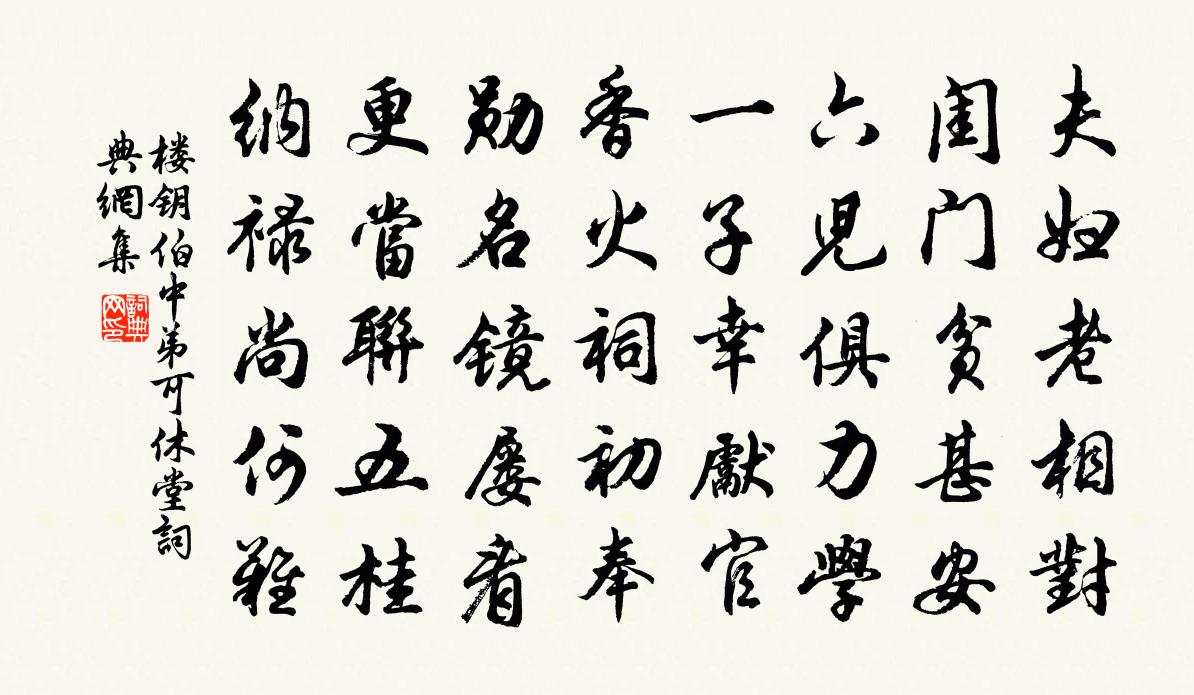 夫妇老相對
闺门贫甚安
六児俱力學
一子幸獻官
香火祠初奉
勋名镜屡看
更當聯五桂
纳禄尚何難
楼钥伯中弟可休堂詞
典網集
詞典
网印